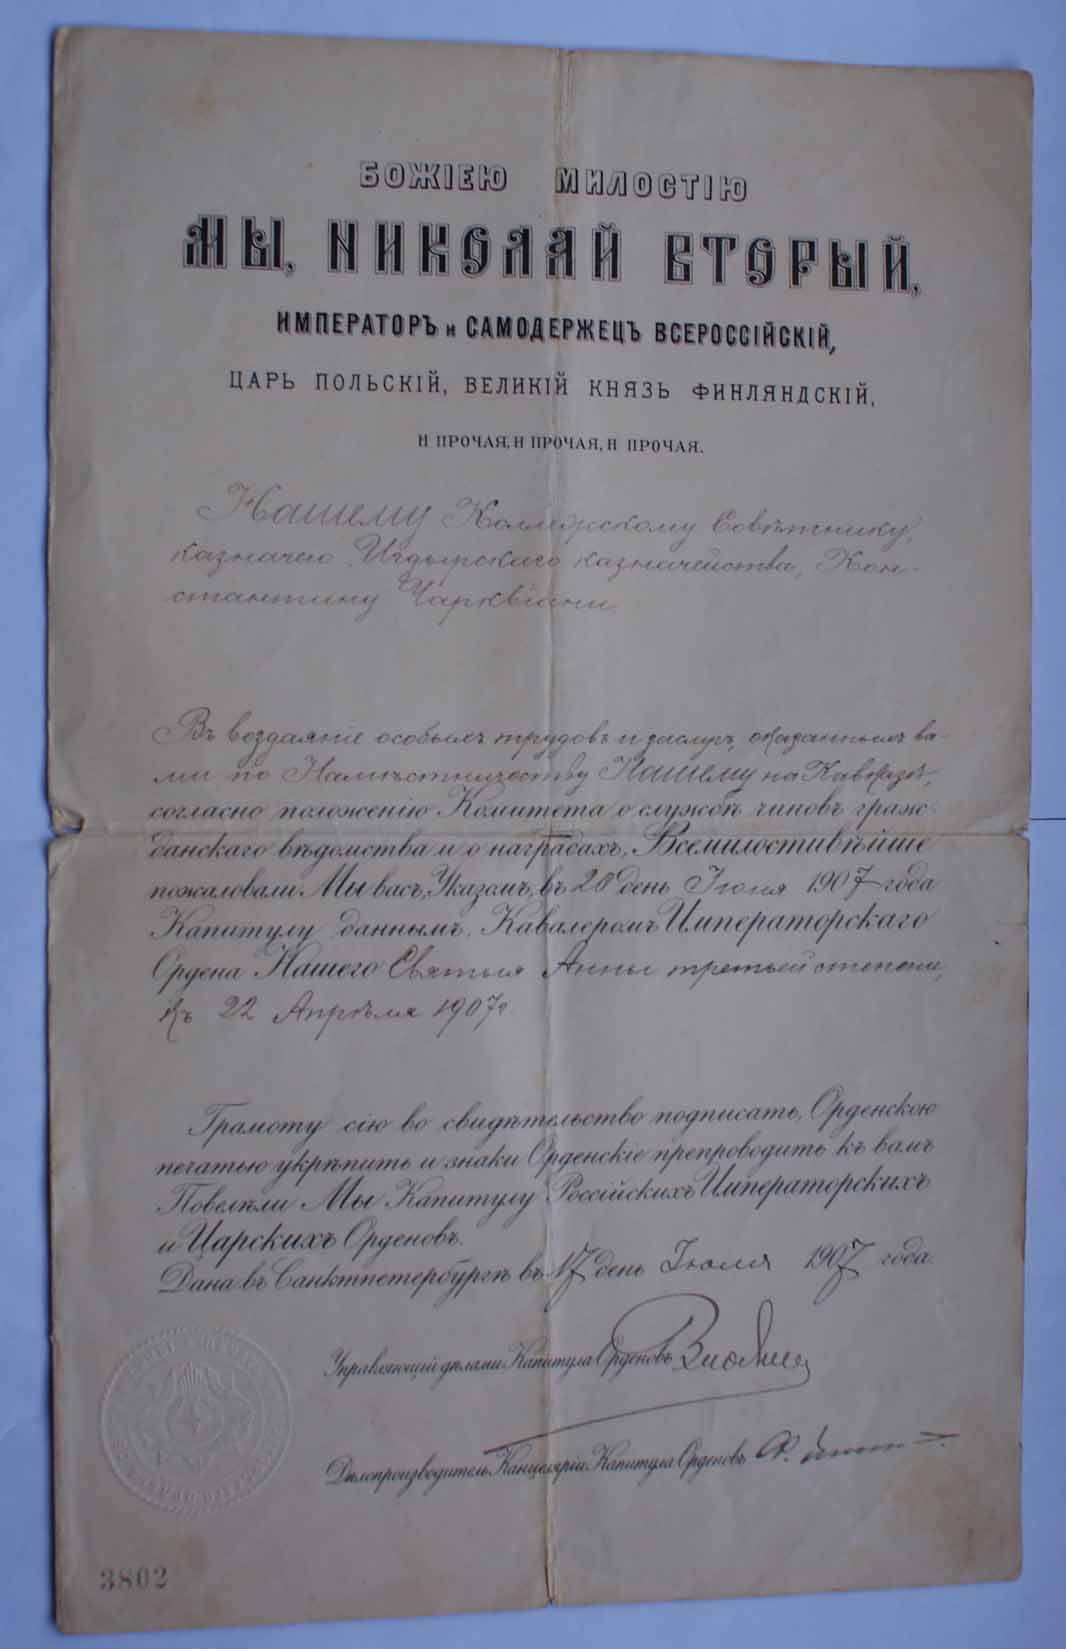 БОЖІЕЮ МИЛОСТІЮ
МЫ, НИКОЛАЙ ВТОРЫЙ,
ИМПЕРАТОРЪ и САМОДЕРЖЕЦЪ ВСЕРОССІЙСКІЙ,
ЦАРЬ ПОЛЬСКІЙ, ВЕЛИКІЙ КНЯЗЬ ФИНЛЯНДСКІЙ,
И ПРОЧАЯ, И ПРОЧАЯ, И ПРОЧАЯ.
Нашему Коллежскому Совѣтнику,
казначею Игдырскаго казначейства, Кон-
стантину Чарквіани
Въ воздаяніе особыхъ трудовъ и заслугъ, оказанныхъ ва-
ми по Намѣстничеству Нашему на Кавказѣ,
согласно положенію Комитета о службѣ чиновъ граж-
данскаго вѣдомства и о наградахъ, Всемилостивѣйше
пожаловали Мы васъ, Указомъ, въ 20 день Іюня 1907 года
Капитулу даннымъ, Кавалеромъ Императорскаго
Ордена Нашего Святыя Анны третьей степени,
къ 22 Апрѣля 1907 г.
Грамоту сію во свидѣтельство подписать, Орденскою
печатью укрѣпить и знаки Орденскіе препроводить къ вамъ
Повелѣли Мы Капитулу Россійскихъ Императорскихъ
и Царскихъ Орденовъ.
Дана въ Санктпетербургѣ въ 17 день Іюля 1907 года.
Управляющій дѣлами Капитула Орденовъ
Дѣлопроизводитель Канцеляріи Капитула Орденовъ
3802